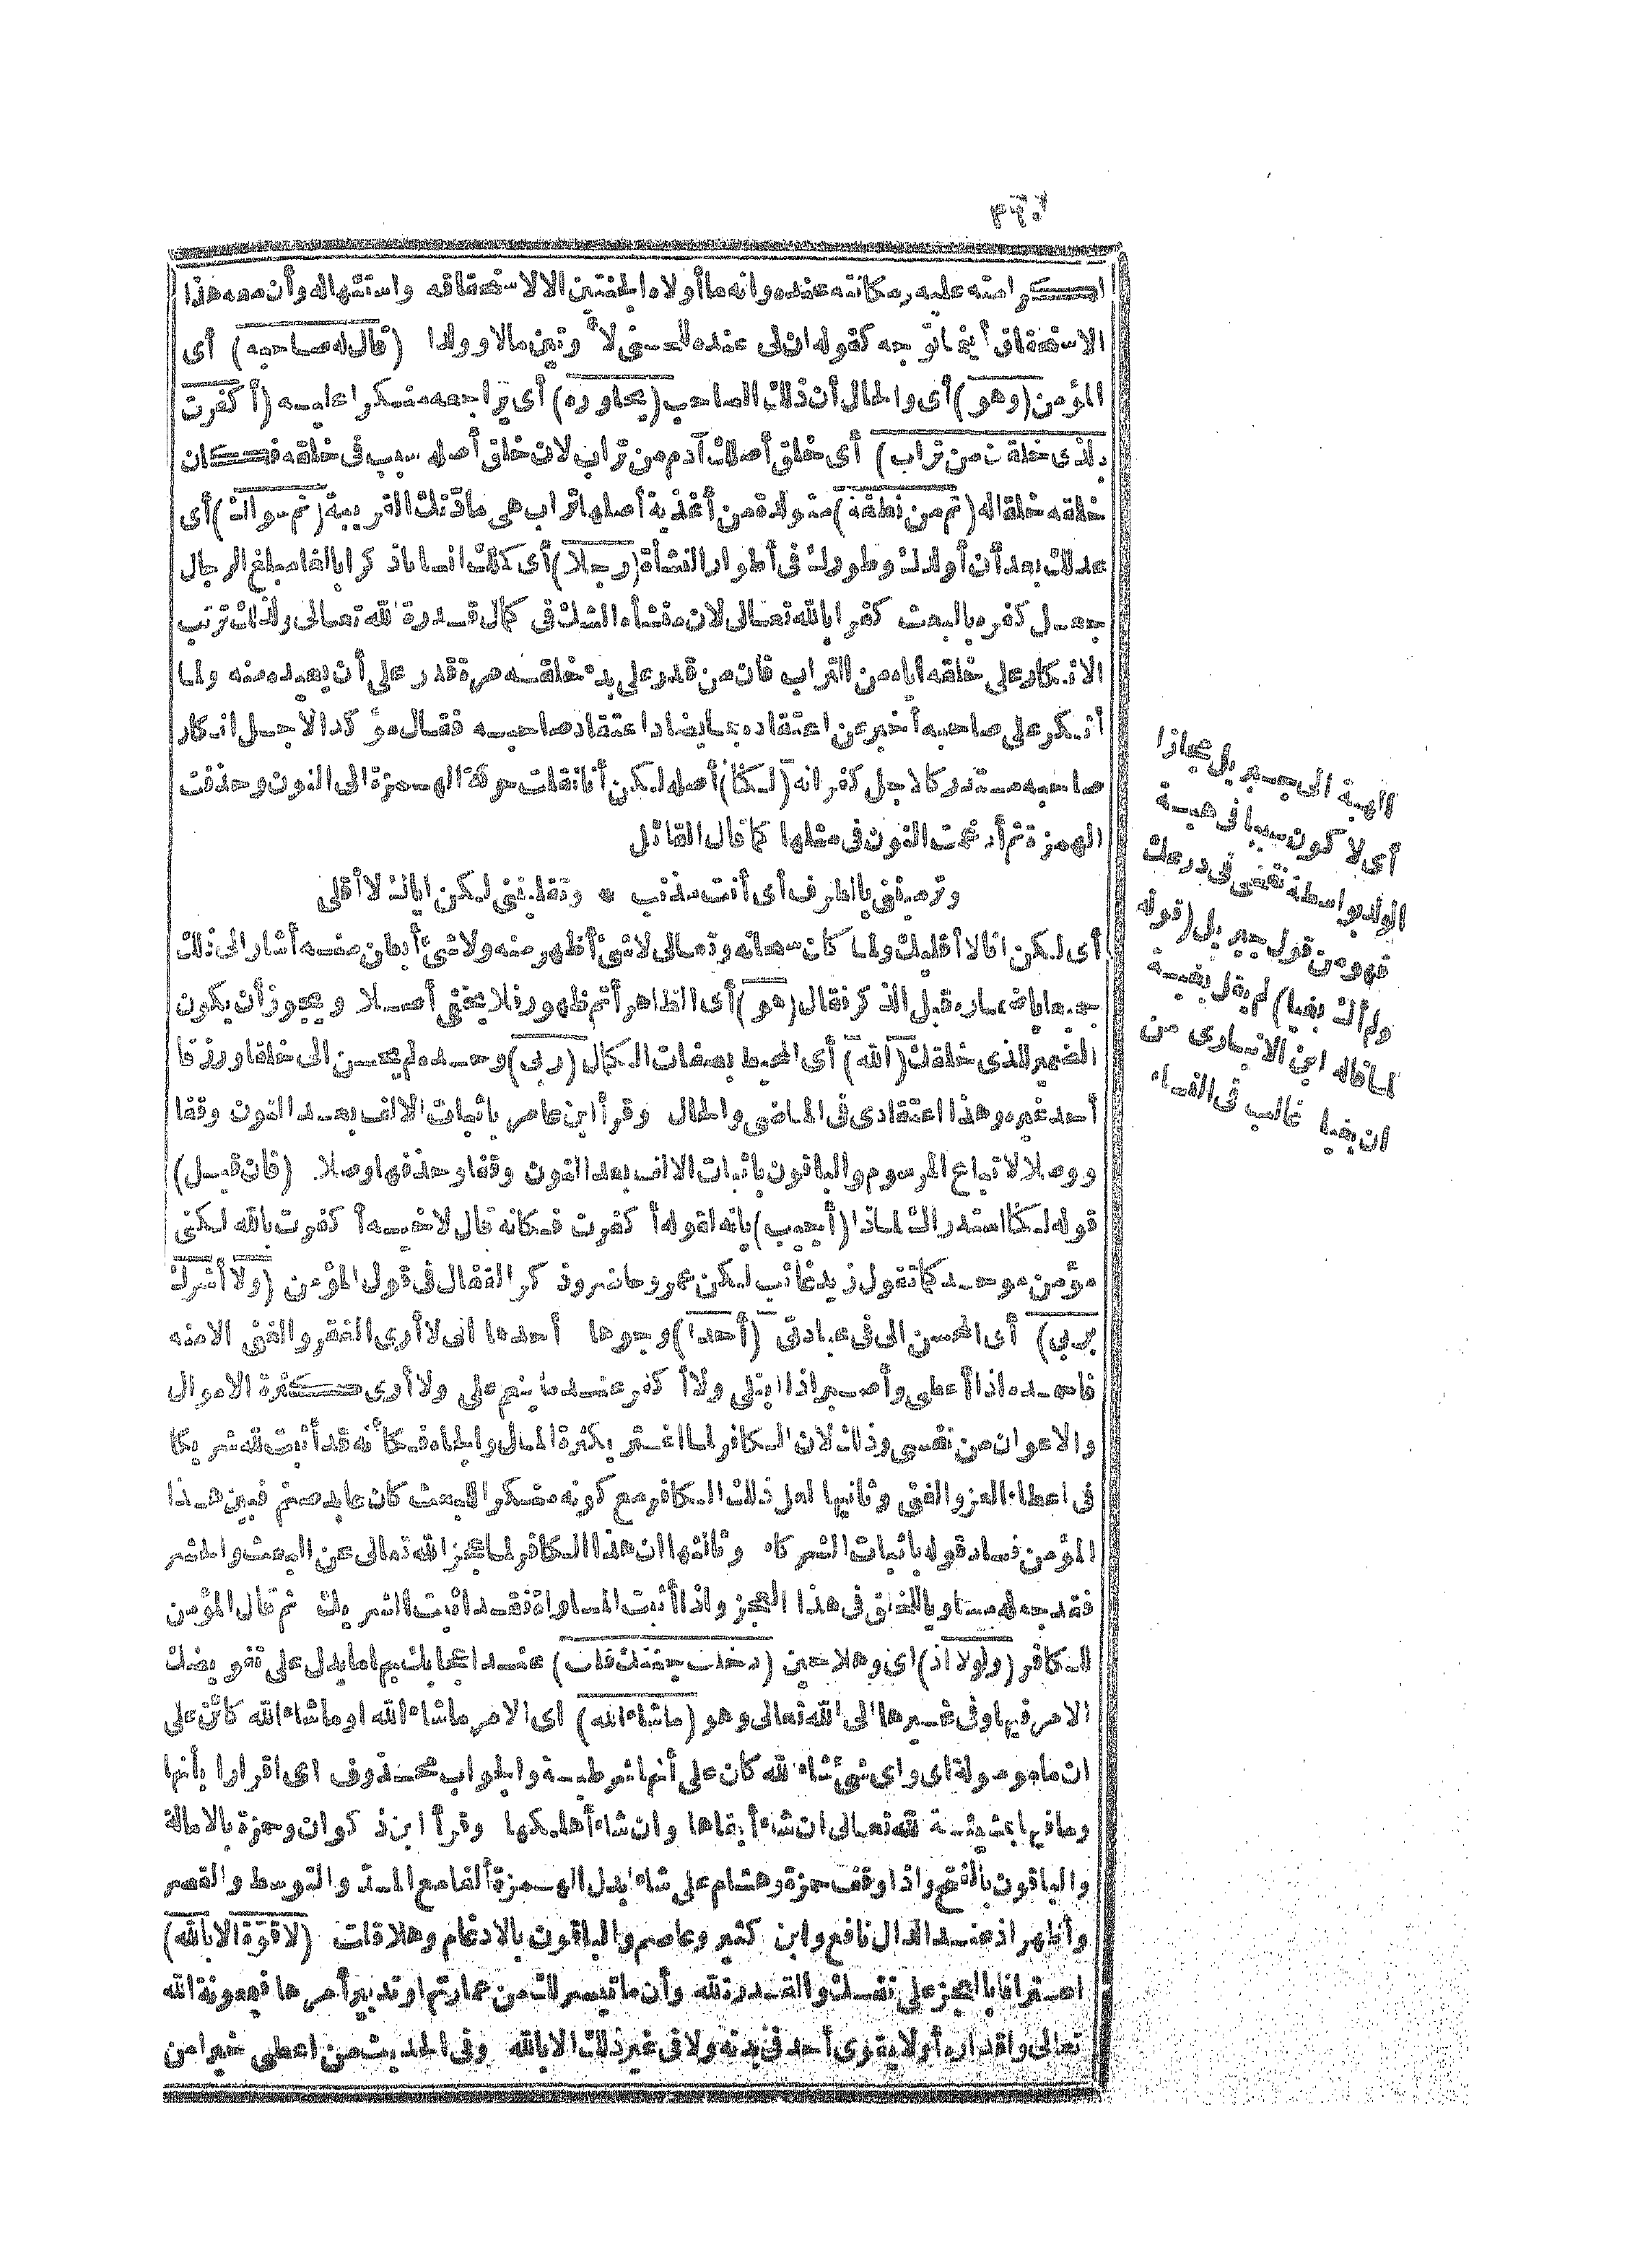 لكرامته عليه ومكانته عنده وانه ما أولاه الجنتين الا لاستحقاقه واستئهاله وأن معه هذا
الاستحقاق أينما توجه كقوله ان لى عنده للحسنى لأوتين مالا وولدا (قال له صاحبه) أى
المؤمن (وهو) أى والحال أن ذلك الصاحب (يحاوره) أى يراجعه منكرا عليه (أكفرت
بالذى خلقك من تراب) أى خلق أصلك آدم من تراب لان خلق أصله سبب فى خلقه فكان
خلقه خلقا له (ثم من نطفة) متولدة من أغذية أصلها تراب هى مادتك القريبة (ثم سواك) أى
عدلك بعد أن أولدك وطورك فى أطوار النشأة (رجلا) أى كملك انسانا ذكرا بالغا مبلغ الرجال
جعل كفره بالبعث كفرا بالله تعالى لان منشأه الشك فى كمال قدرة الله تعالى ولذلك ترتب
الانكار على خلقه اياه من التراب فان من قدر على بدء خلقه مرة قدر على أن يعيده منه ولما
أنكر على صاحبه أخبر عن اعتقاده بما يضاد اعتقاد صاحبه فقال مؤكدا لأجل انكار
صاحبه مستدركا لاجل كفرانه (لكنا) أصله لكن أنا نقلت حركة الهمزة الى النون وحذفت
الهمزة ثم أدغمت النون فى مثلها كما قال القائل
وترميننى بالطرف أى أنت مذنب * وتقليننى لكن اياك لا أقلى
أى لكن انا لا أقليك ولما كان سبحانه وتعالى لا شئ أظهر منه ولا شئ أبطن منه أشار الى ذلك
جميعا باضماره قبل الذكر فقال (هو) أى الظاهر أتم ظهور فلا يخفى أصلا ويجوز أن يكون
الضمير للذى خلقك (الله) أى المحيط بصفات الكمال (ربى) وحده لم يحسن الى خلقا ورزقا
أحد غيره وهذا اعتقادى فى الماضى والحال وقرأ ابن عامر باثبات الالف بعد النون وقفا
ووصلا لاتباع المرسوم والباقون باثبات الالف بعد النون وقفا وحذفها وصلا (فان قيل)
قوله لكنا استدراك لماذا (أجيب) بانه لقوله أكفرت فكانه قال لاخيه أكفرت بالله لكنى
مؤمن موحد كما تقول زيد غائب لكن عمرو حاضر وذكر القفال فى قول المؤمن (ولا أشرك
بربى) أى المحسن الى فى عبادتى (أحدا) وجوها أحدها انى لا أرى الفقر والغنى الا منه
فاحمده اذا أعطى وأصبر اذا ابتلى ولا أكفر عند ما ينعم على ولا أرى كثرة الاموال
والاعوان من نفسى وذلك لان الكافر لما اغتر بكثرة المال والجاه فكأنه قد أثبت لله شريكا
فى اعطاء العز والغنى وثانيها لعل ذلك الكافر مع كونه منكرا للبعث كان عابد صنم فبين هذا
المؤمن فساد قوله باثبات الشركاء وثالثها ان هذا الكافر لما عجز الله تعالى عن البعث والحشر
فقد جعله مساويا للخلق فى هذا العجز واذا أثبت المساواة فقد أثبت الشريك ثم قال المؤمن
للكافر (ولولا اذ) اى وهلا حين (دخلت جنتك قلت) عند اعجابك بها ما يدل على تفويضك
الامر فيها وفى غيرها الى الله تعالى وهو (ما شاء الله) اى الامر ما شاء الله او ما شاء الله كائن على
ان ما موصولة اى واى شئ شاء الله كان على أنها شرطية والجواب محذوف اى اقرارا بأنها
وما فيها بمشيئة الله تعالى ان شاء أبقاها وان شاء أهلكها وقرأ ابن ذكوان وحمزة بالامالة
والباقون بالفتح واذا وقف حمزة وهشام على شاء ابدل الهمزة ألفا مع المد والتوسط والقصر
وأظهر اذ عند الدال نافع وابن كثير وعاصم والباقون بالادغام وهلا قلت (لا قوة الا بالله)
اعترافا بالعجز على نفسك والقدرة لله وأن ما تيسر لك من عمارتها وتدبير أمرها فبمعونة الله
تعالى واقداره أولا يقوى أحد فى بدنه ولا فى غير ذلك الا بالله وفى الحديث من اعطى خيرا من
الهبة الى جبريل مجازا
أى لا كون سببا فى هبة
الولد بواسطة نفخى فى درعك
فهو من قول جبريل (قوله
ولم أك بغيا) لم يقل بغية
لما قاله ابن الانبارى من
ان بغيا غالب فى النساء